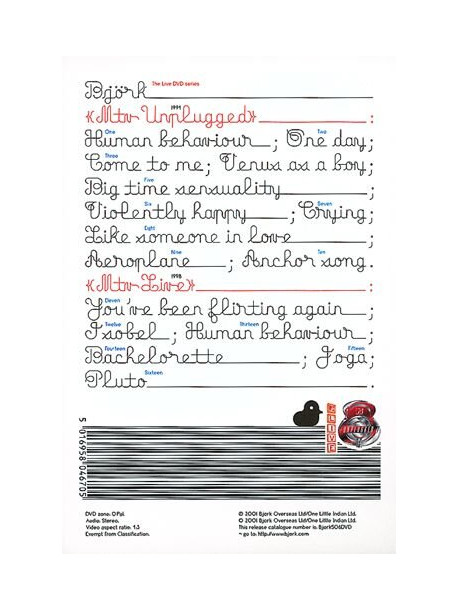 Björk The Live DVD series
1994
«Mtv Unplugged» :
One Two
Human behaviour ; One day;
Three Four
Come to me; Venus as a boy;
Five
Big time sensuality ;
Six Seven
Violently happy ; Crying;
Eight
Like someone in love ;
Nine Ten
Aeroplane ; Anchor song.
1998
«Mtv Live» :
Eleven
You've been flirting again ;
Twelve Thirteen
Isobel ; Human behaviour ;
Fourteen Fifteen
Bachelorette ; Joga;
Sixteen
Pluto .
LIVE
5 016958 046705
DVD zone: 0 Pal.
Audio. Stereo.
Video aspect ratio: 4:3
Exempt from Classification.
© 2001 Bjork Overseas Ltd/One Little Indian Ltd.
℗ 2001 Bjork Overseas Ltd/One Little Indian Ltd.
This release catalogue number is: Bjork506DVD
~ go to: http://www.bjork.com